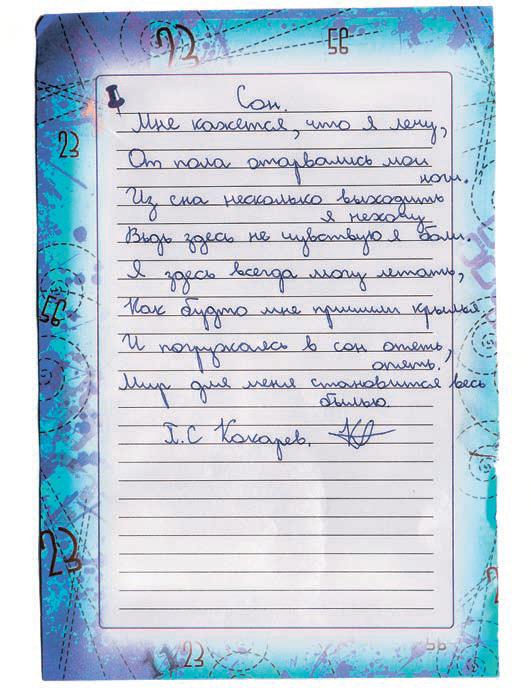 23
56
23
Сон.
Мне кажется, что я лечу,
От пола оторвались мои
ноги.
Из сна несколько выходить
я нехочу
Ведь здесь не чувствую я боли.
Я здесь всегда могу летать,
Как будто мне пришили крылья
И погружаясь в сон опять,
опять.
Мир для меня становится весь
былью.
Т.С Кокарев.
56
23
23
23
56